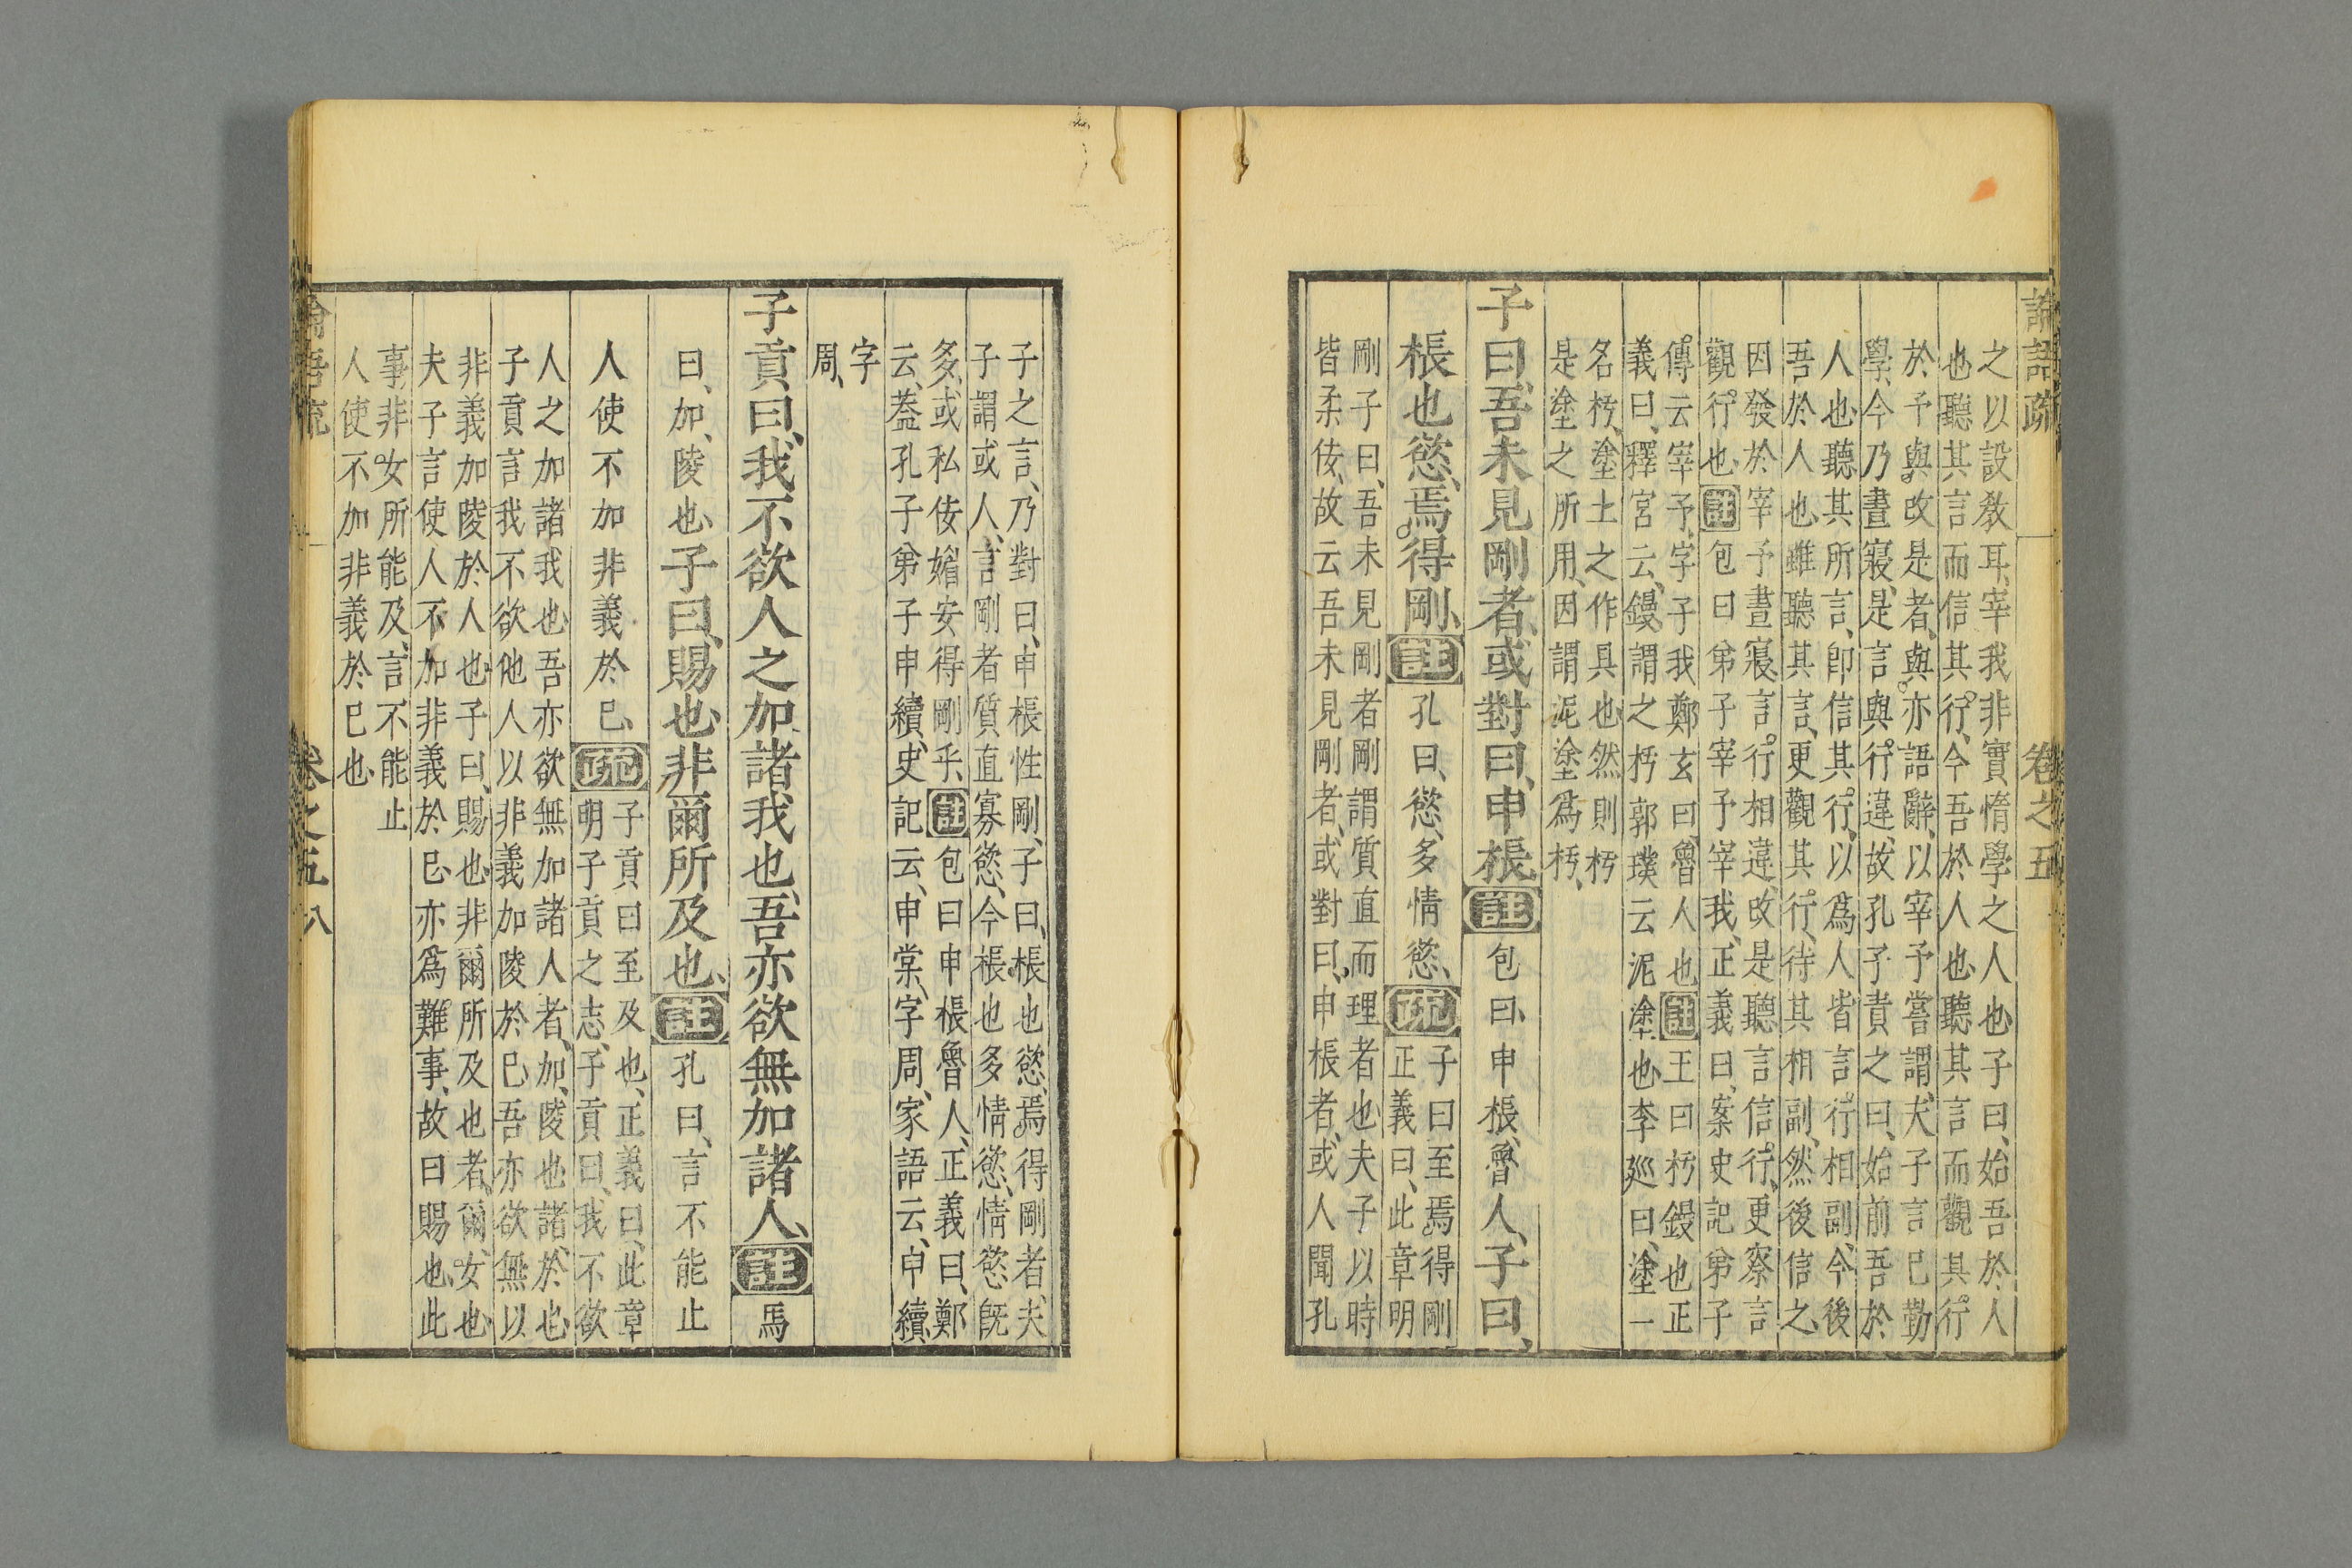 論語疏 卷之五
之以設教耳、宰我非實惰學之人也子曰、始吾於人
也聽其言而信其行、今吾於人也、聽其言而觀其行
於予與改是者、與亦語辭、以宰予嘗謂、夫子言已勤
學、今乃晝寢、是言與行違、故孔子責之曰、始前吾於
人也、聽其所言、卽信其行、以爲人皆言行相副、今後
吾於人也、雖聽其言、更觀其行、待其相副、然後信之、
因發於宰予晝寢、言行相違、改是聽言信行、更察言
觀行也、註包曰弟子宰予宰我、正義曰、案史記弟子
傳云宰予、字子我鄭玄曰、魯人也註王曰杇鏝也正
義曰、釋宮云、鏝謂之杇郭璞云泥塗也李廵曰、塗一
名杇、塗土之作具也然則杇
是塗之所用、因謂泥塗爲杇、
子曰、吾未見剛者、或對曰、申棖註包曰、申棖、魯人、子曰、
棖也慾、焉得剛、註孔曰、慾、多情慾、疏子曰至焉得剛
正義曰、此章明
剛子曰、吾未見剛者剛謂質直而理者也夫子以時
皆柔佞、故云吾未見剛者、或對曰、申棖者、或人聞孔
子之言、乃對曰、申棖性剛、子曰、棖也慾、焉得剛者、夫
子謂或人、言剛者質直寡慾、今棖也多情慾、情慾旣
多、或私佞媚安得剛乎、註包曰申棖魯人、正義曰、鄭
云、葢孔子弟子申續、史記云、申棠、字周、家語云、申續、
字
周、
子貢曰、我不欲人之加諸我也、吾亦欲無加諸人、註馬
曰、加、陵也、子曰、賜也、非爾所及也、註孔曰、言不能止
人使不加非義於已、疏子貢曰至及也、正義曰、此章
明子貢之志、子貢曰、我不欲
人之加諸我也吾亦欲無加諸人者、加、陵也諸、於也、
子貢言我不欲他人以非義加陵於已、吾亦欲無以
非義加陵於人也、子曰、賜也、非爾所及也者、爾、女也、
夫子言使人不加非義於已、亦爲難事、故曰賜也、此
事非女所能及、言不能止
人使不加非義於已也
論語疏 卷之五 八